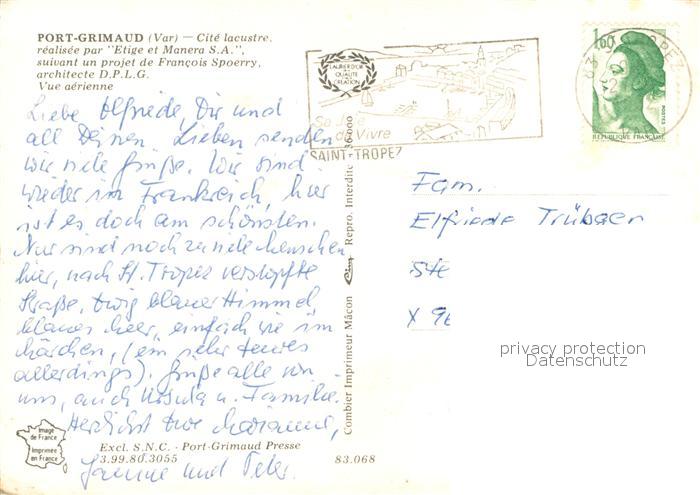 PORT-GRIMAUD (Var) — Cité lacustre,
réalisée par "Etige et Manera S.A.",
suivant un projet de François Spoerry,
architecte D.P.L.G.
Vue aérienne
Liebe Elfriede Dir und
all Deinen Lieben senden
wir viele Grüße. Wir sind
wieder in Frankreich, hier
ist es doch am schönsten.
Nur sind noch zu viele Menschen
hier, nach St. Tropez verstopfte
Straße, ewig blauer Himmel
blaues Meer, einfach wie im
Märchen, (ein sehr teures
allerdings). Grüße alle von
uns, auch Ursula u. Familie.
Herzlichst Eure Marianne,
und Peter.
Image
de France
Imprimée
en France
Excl. S.N.C. - Port-Grimaud Presse
3.99.80.3055
83.068
Combier Imprimeur Mâcon
Cim
Repro. Interdite
LAURIER D'OR
QUALITE
CREATION
de Vivre
SAINT-TROPEZ
83
TROPEZ
1,60
POSTES
REPUBLIQUE FRANÇAISE
Fam.
Elfriede Trübaer
X 9
privacy protection
Datenschutz